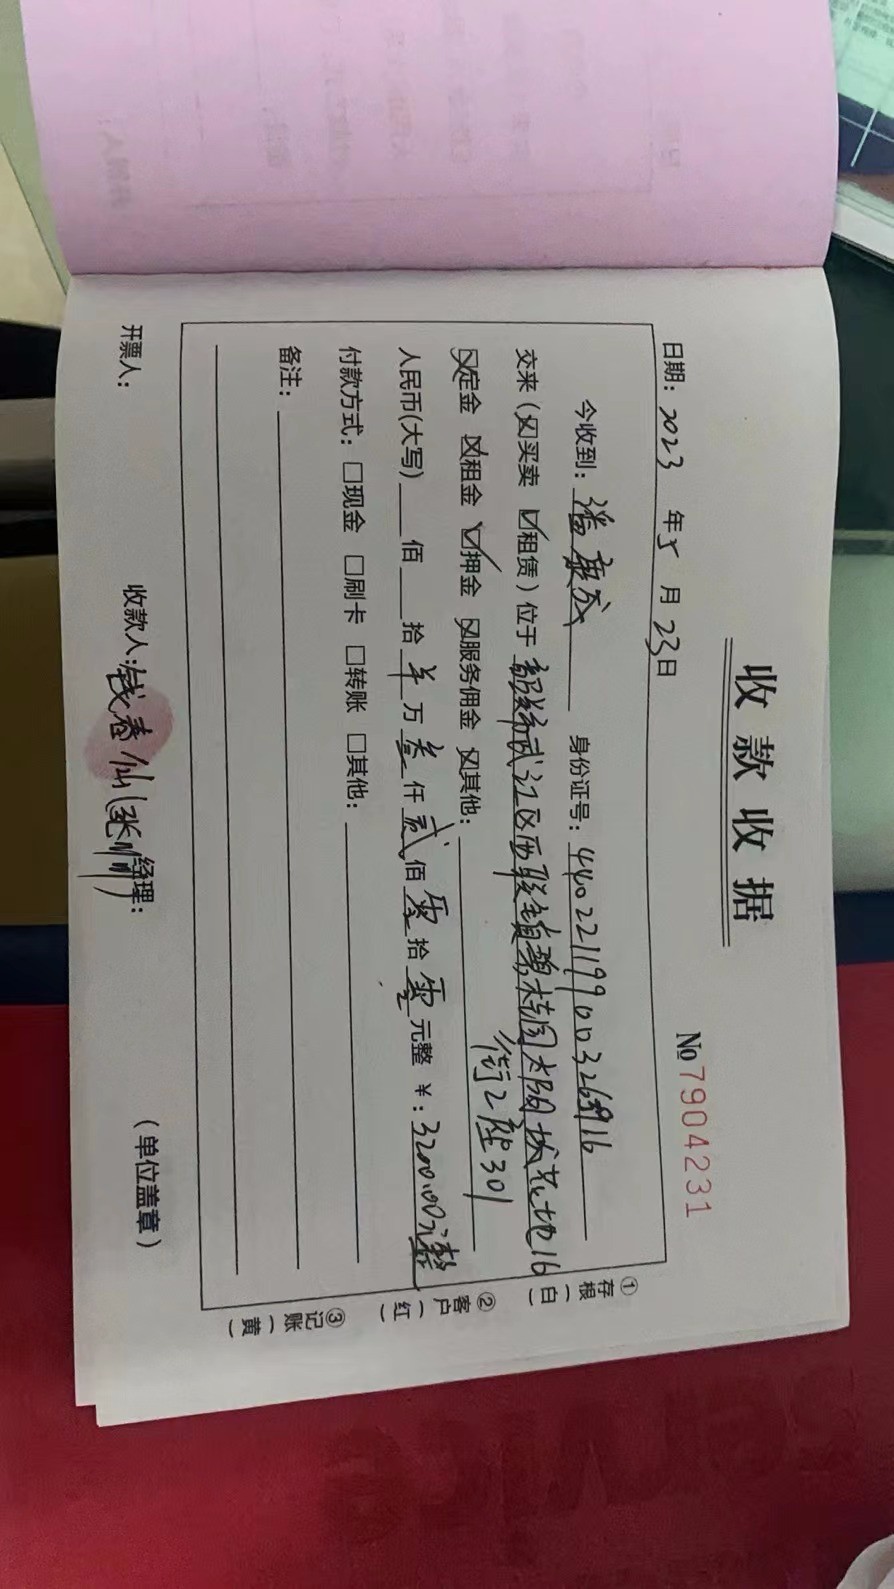 收款收据
No 7904231
日期：2023年5月23日
今收到：潘康成 身份证号：440221199003269916
交来（☒买卖 ☑租赁）位于韶关市武江区西联镇碧桂园太阳城花地16
街2座301
☒定金 ☒租金 ☑押金 ☒服务佣金 ☒其他：
人民币(大写) 佰 拾 羊 万 叁 仟 贰 佰 零 拾 零 元整 ￥：3200.00元整
付款方式：□现金 □刷卡 □转账 □其他：
备注：
开票人： 收款人：钱春仙 经理： （单位盖章）
①存根（白）
②客户（红）
③记账（黄）
service